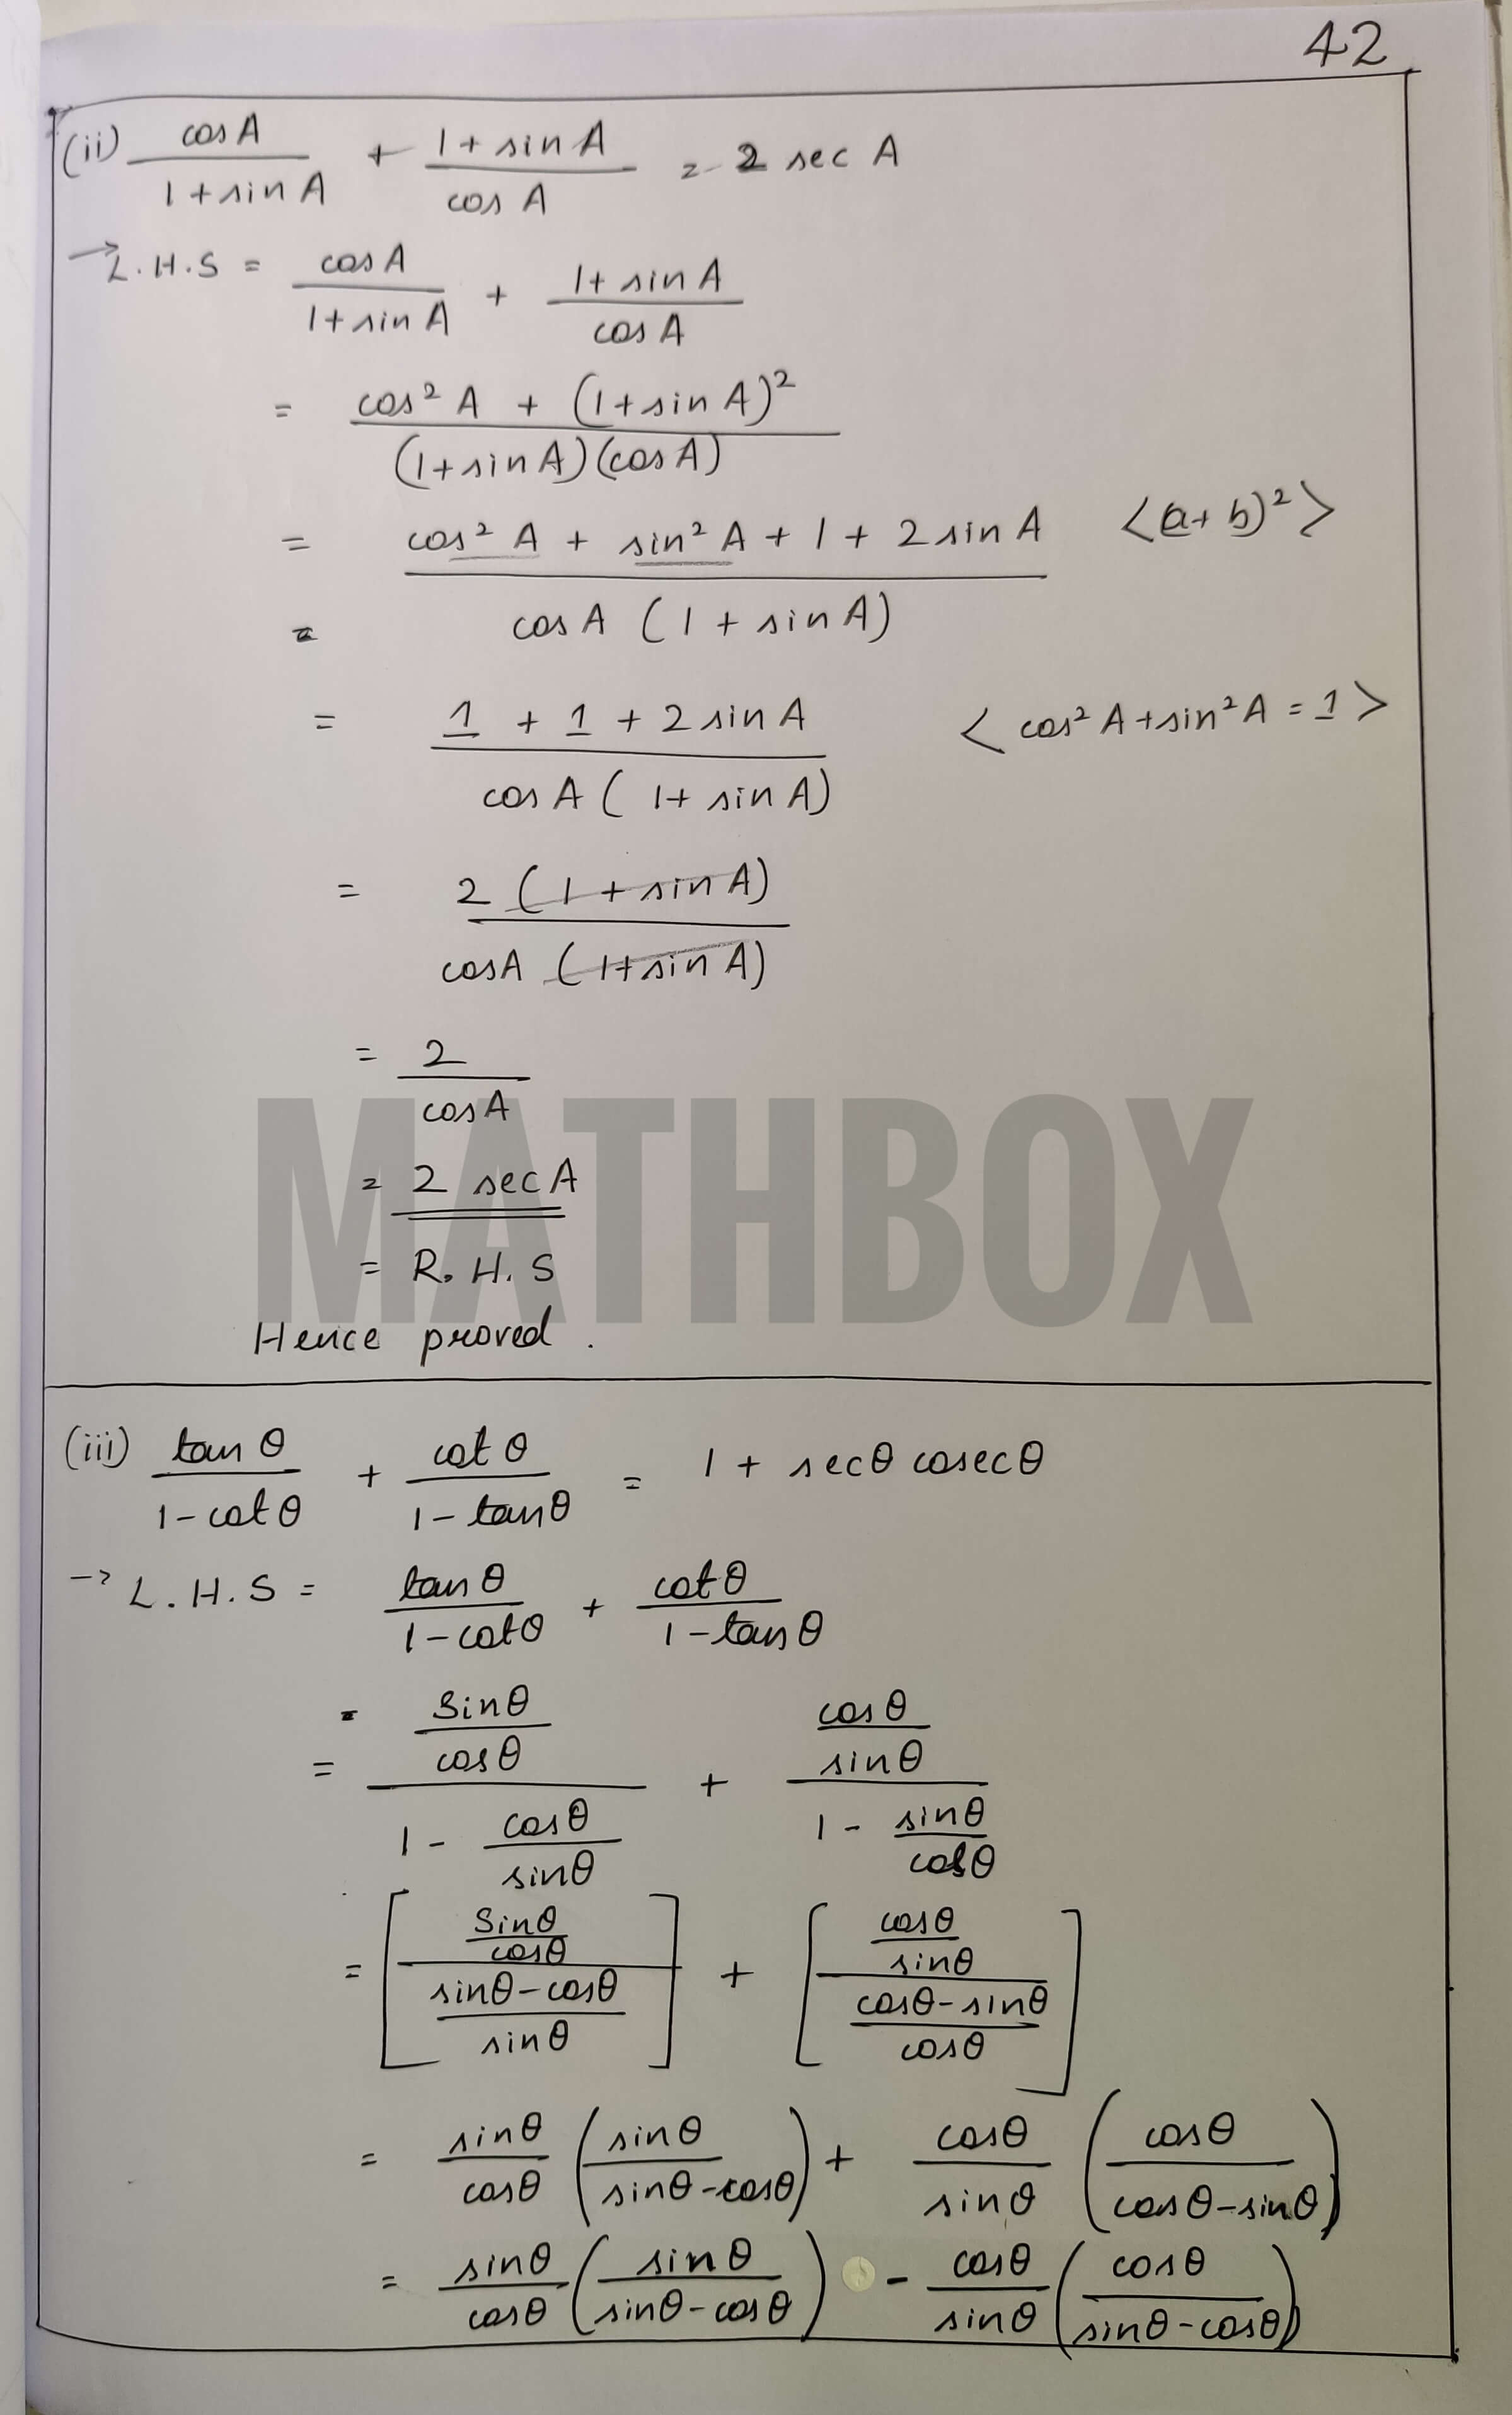 42
(ii) cosA / 1+sinA + 1+sinA / cosA = 2 sec A
→ L.H.S = cosA / 1+sinA + 1+sinA / cosA
= cos² A + (1+sin A)² / (1+sinA)(cosA)
= cos² A + sin² A + 1 + 2 sin A / cosA (1 + sinA) <(a+b)²>
=
= 1 + 1 + 2 sin A / cosA (1+ sinA) < cos² A + sin² A = 1 >
= 2 (1 + sinA) / cosA (1+sinA)
= 2 / cosA
= 2 secA
= R.H.S
MATHBOX
Hence proved.
(iii) tanθ / 1-cotθ + cotθ / 1-tanθ = 1 + secθ cosecθ
→ L.H.S = tanθ / 1-cotθ + cotθ / 1-tanθ
= sinθ/cosθ / 1 - cosθ/sinθ + cosθ/sinθ / 1 - sinθ/cosθ
= [sinθ/cosθ / sinθ-cosθ/sinθ] + [cosθ/sinθ / cosθ-sinθ/cosθ]
= sinθ/cosθ (sinθ / sinθ-cosθ) + cosθ/sinθ (cosθ / cosθ-sinθ)
= sinθ/cosθ (sinθ / sinθ-cosθ) - cosθ/sinθ (cosθ / sinθ-cosθ)